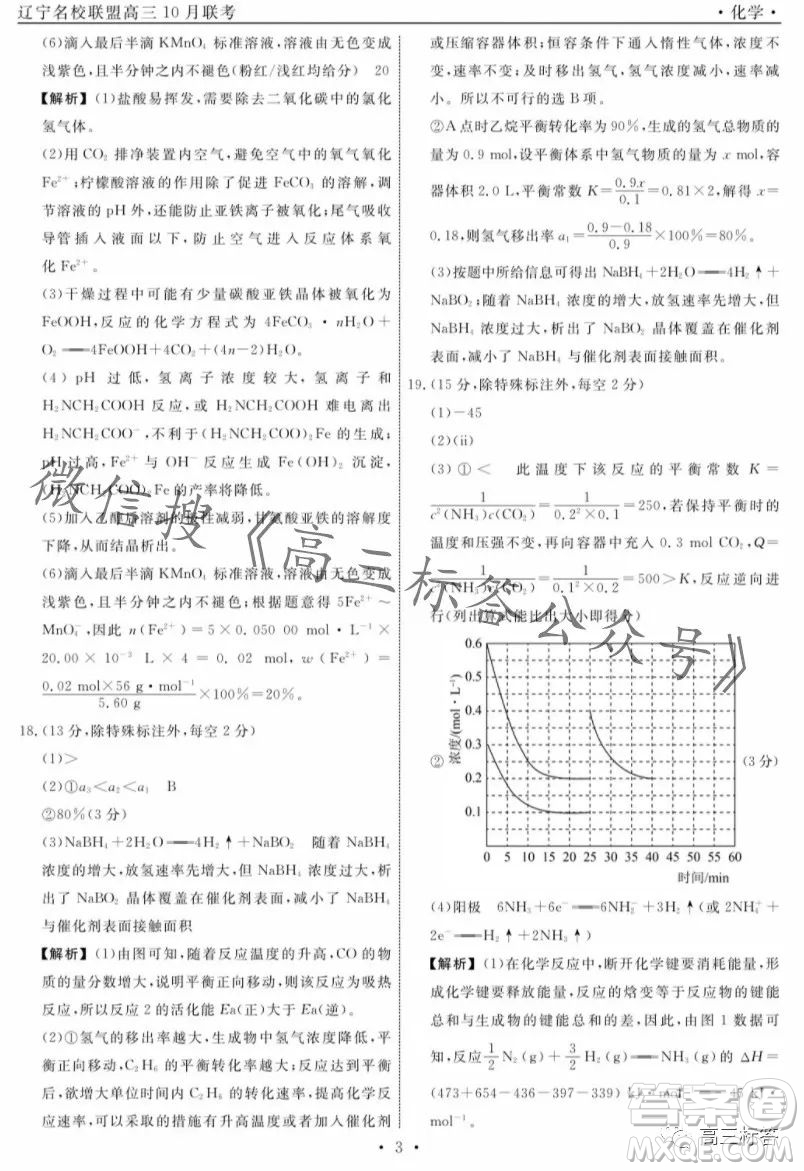 辽宁名校联盟高三10月联考
·化学·
(6)滴入最后半滴 KMnO₄ 标准溶液,溶液由无色变成
浅紫色,且半分钟之内不褪色(粉红/浅红均给分) 20
【解析】(1)盐酸易挥发,需要除去二氧化碳中的氯化
氢气体。
(2)用CO₂ 排净装置内空气,避免空气中的氧气氧化
Fe²⁺;柠檬酸溶液的作用除了促进 FeCO₃ 的溶解,调
节溶液的 pH 外,还能防止亚铁离子被氧化;尾气吸收
导管插入液面以下,防止空气进入反应体系氧
化Fe²⁺。
(3)干燥过程中可能有少量碳酸亚铁晶体被氧化为
FeOOH,反应的化学方程式为 4FeCO₃·nH₂O+
O₂══4FeOOH+4CO₂+(4n-2)H₂O。
(4)pH 过低,氢离子浓度较大,氢离子和
H₂NCH₂COOH 反应,或 H₂NCH₂COOH 难电离出
H₂NCH₂COO⁻,不利于(H₂NCH₂COO)₂Fe的生成;
pH过高,Fe²⁺与 OH⁻反应生成 Fe(OH)₂ 沉淀,
(H₂NCH₂COO)₂Fe的产率将降低。
(5)加入乙醇后溶剂的极性减弱,甘氨酸亚铁的溶解度
下降,从而结晶析出。
(6)滴入最后半滴 KMnO₄ 标准溶液,溶液由无色变成
浅紫色,且半分钟之内不褪色;根据题意得5Fe²⁺~
MnO₄⁻,因此 n(Fe²⁺)=5×0.050 00 mol·L⁻¹×
20.00 × 10⁻³ L × 4 = 0.02 mol,w(Fe²⁺)=
0.02 mol×56 g·mol⁻¹/5.60 g ×100%=20%。
18.(13分,除特殊标注外,每空2分)
(1)>
(2)①a₃<a₂<a₁ B
②80%(3分)
(3)NaBH₄+2H₂O══4H₂↑+NaBO₂ 随着 NaBH₄
浓度的增大,放氢速率先增大,但 NaBH₄ 浓度过大,析
出了 NaBO₂ 晶体覆盖在催化剂表面,减小了 NaBH₄
与催化剂表面接触面积
【解析】(1)由图可知,随着反应温度的升高,CO的物
质的量分数增大,说明平衡正向移动,则该反应为吸热
反应,所以反应2的活化能Ea(正)大于Ea(逆)。
(2)①氢气的移出率越大,生成物中氢气浓度降低,平
衡正向移动,C₂H₆ 的平衡转化率越大;反应达到平衡
后,欲增大单位时间内 C₂H₆ 的转化速率,提高化学反
应速率,可以采取的措施有升高温度或者加入催化剂
或压缩容器体积;恒容条件下通入惰性气体,浓度不
变,速率不变;及时移出氢气,氢气浓度减小,速率减
小。所以不可行的选B项。
②A点时乙烷平衡转化率为90%,生成的氢气总物质的
量为0.9 mol,设平衡体系中氢气物质的量为 x mol,容
器体积2.0 L,平衡常数 K=0.9x/0.1=0.81×2,解得 x=
0.18,则氢气移出率a₁=(0.9-0.18)/0.9×100%=80%。
(3)按题中所给信息可得出 NaBH₄+2H₂O══4H₂↑+
NaBO₂;随着 NaBH₄ 浓度的增大,放氢速率先增大,但
NaBH₄ 浓度过大,析出了 NaBO₂ 晶体覆盖在催化剂
表面,减小了 NaBH₄ 与催化剂表面接触面积。
19.(15分,除特殊标注外,每空2分)
(1)-45
(2)(ⅱ)
(3)①< 此温度下该反应的平衡常数 K=
1/(c²(NH₃)c(CO₂))=1/(0.2²×0.1)=250,若保持平衡时的
温度和压强不变,再向容器中充入 0.3 mol CO₂,Q=
1/(c²(NH₃)c(CO₂))=1/(0.1²×0.2)=500>K,反应逆向进
行(列出算式能比出大小即得分)
②
浓度/(mol·L⁻¹)
0.6
0.5
0.4
0.3
0.2
0.1
0 5 10 15 20 25 30 35 40 45 50 55 60
时间/min
(3分)
(4)阳极 6NH₃+6e⁻══6NH₂⁻+3H₂↑(或2NH₄⁺+
2e⁻══H₂↑+2NH₃↑)
【解析】(1)在化学反应中,断开化学键要消耗能量,形
成化学键要释放能量,反应的焓变等于反应物的键能
总和与生成物的键能总和的差,因此,由图1数据可
知,反应1/2N₂(g)+3/2H₂(g)══NH₃(g)的 ΔH=
(473+654-436-397-339)
mol⁻¹。
·3·
微信搜《高三标答公众号》
答案圈
高三标答